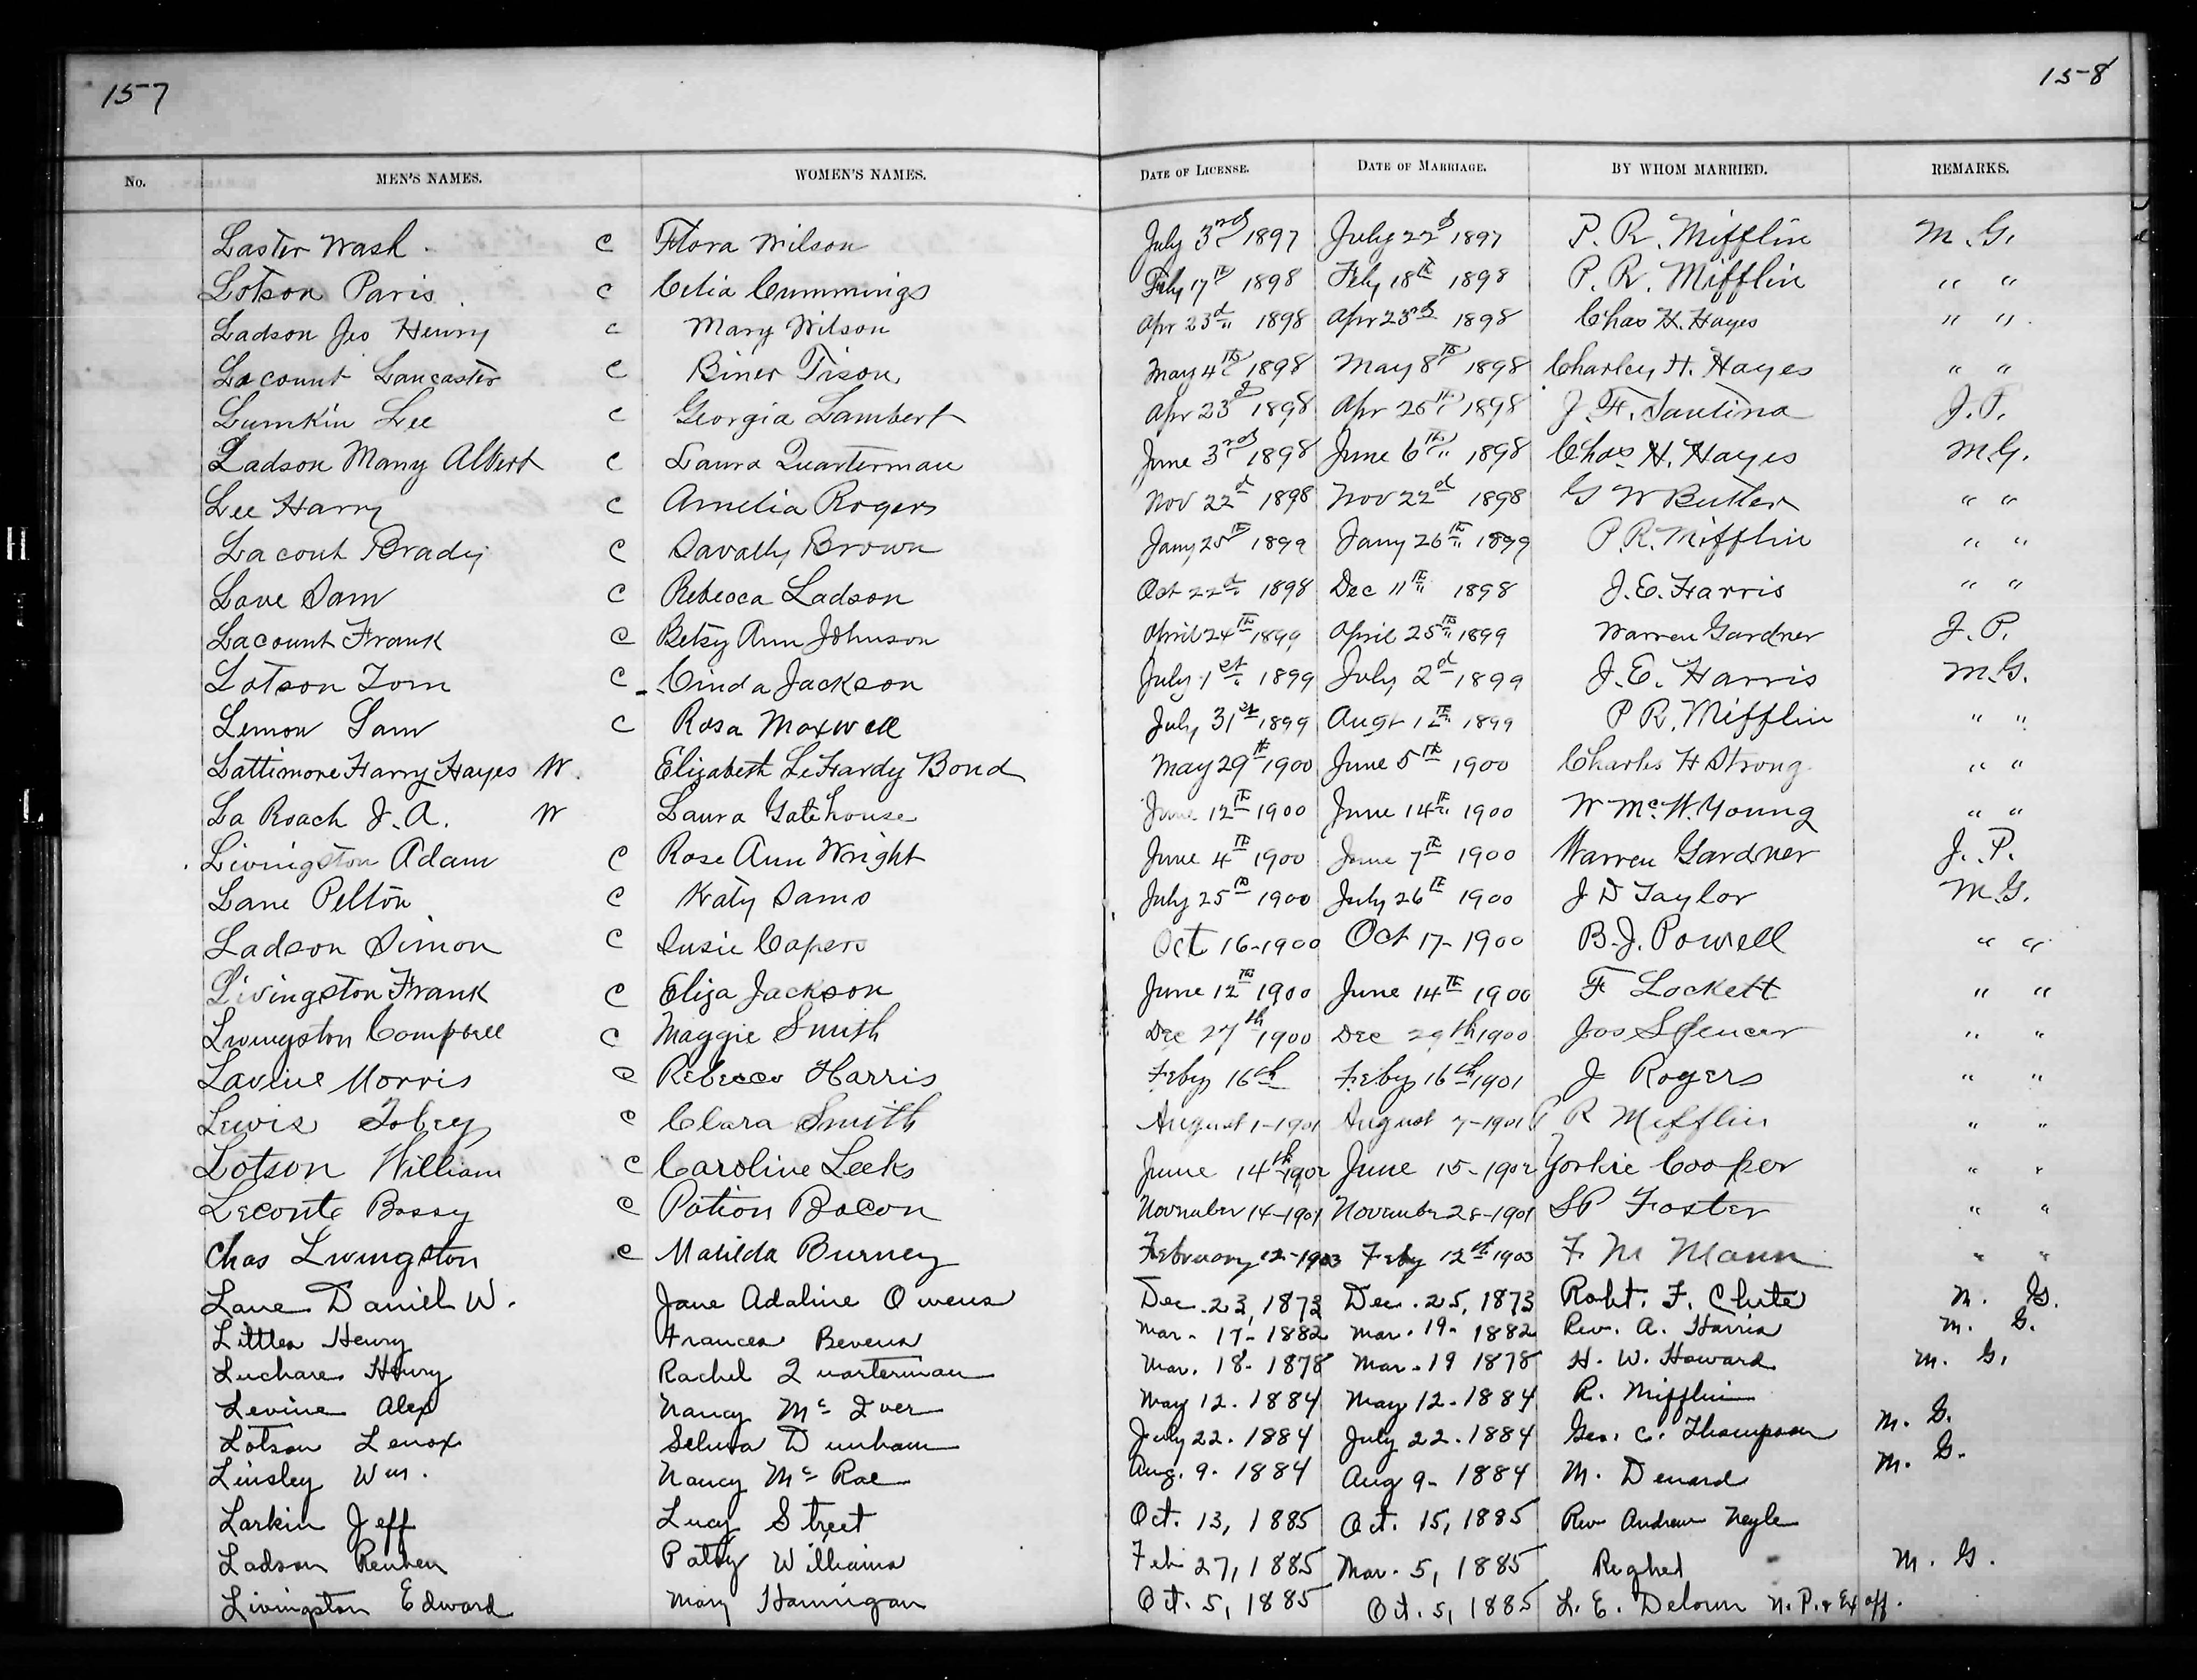 157
158
No. MEN'S NAMES. WOMEN'S NAMES. DATE OF LICENSE. DATE OF MARRIAGE. BY WHOM MARRIED. REMARKS.
Laster Wash. C Flora Wilson July 3rd 1897 July 22d 1897 P. R. Mifflin M. G.
Lotson Paris C Celia Cummings Feby 17th 1898 Feby 18th 1898 P. R. Mifflin " "
Ladson Jno Henry C Mary Wilson Apr 23d 1898 Apr 23d 1898 Chas H. Hayes " "
Lacount Lancaster C Biner Tison May 4th 1898 May 8th 1898 Charley H. Hayes " "
Lumkin Lee C Georgia Lambert Apr 23d 1898 Apr 26th 1898 J. F. Tantina J. P.
Ladson Many Albert C Laura Quarterman June 3rd 1898 June 6th 1898 Chas H. Hayes M.G.
Lee Harry C Amelia Rogers Nov 22d 1898 Nov 22d 1898 G W Butler " "
Lacout Brady C Savally Brown Jany 25th 1899 Jany 26th 1899 P. R. Mifflin " "
Lane Sam C Rebecca Ladson Oct 22d 1898 Dec 11th 1898 J. E. Harris " "
Lacount Frank C Betsy Ann Johnson April 24th 1899 April 25th 1899 Warren Gardner J. P.
Lotson Tom C Cinda Jackson July 1st 1899 July 2d 1899 J. E. Harris M.G.
Lemon Sam C Rosa Maxwell July 31st 1899 Augt 12th 1899 P R. Mifflin " "
Lattimore Harry Hayes W. Elizabeth LeHardy Bond May 29th 1900 June 5th 1900 Charles H Strong " "
La Roach J. A. W Laura Gatehouse June 12th 1900 June 14th 1900 W Mc.W. Young " "
Livingston Adam C Rose Ann Wright June 4th 1900 June 7th 1900 Warren Gardner J. P.
Lane Pelton C Katy Sams July 25th 1900 July 26th 1900 J D Taylor M.G.
Ladson Simon C Susie Capers Oct 16-1900 Oct 17-1900 B. J. Powell " "
Livingston Frank C Eliza Jackson June 12th 1900 June 14th 1900 F Lockett " "
Livingston Campbell C Maggie Smith Dec 27th 1900 Dec 29th 1900 Jas Spencer " "
Lavine Morris C Rebecca Harris Feby 16th Feby 16th 1901 J Rogers " "
Lewis Tobey C Clara Smith August 1-1901 August 7-1901 P R Mifflin " "
Lotson William C Caroline Leeks June 14th 1902 June 15-1902 Yorkie Cooper " "
Leconte Bossy C Potion Bacon November 14-1901 November 28-1901 S P Foster " "
Chas Livingston C Matilda Burney February 12-1903 Feby 12th 1903 F M Mann " "
Lane Daniel W. Jane Adaline Owens Dec. 23, 1873 Dec. 25, 1873 Robt. F. Chute M. G.
Littles Henry Frances Bevens Mar. 17- 1882 Mar. 19- 1882 Rev. A. Harris M. G.
Luchare Henry Rachel Quarterman Mar. 18- 1878 Mar. 19 1878 H. W. Howard M. G.
Levine Alex Nancy McIver May 12. 1884 May 12. 1884 R. Mifflin
Lotson Lenox Selma Dunham July 22. 1884 July 22. 1884 Geo. C. Thompson M. G.
Linsley Wm. Nancy McRae Aug. 9. 1884 Aug 9- 1884 M. Denard M. G.
Larkin Jeff Lucy Street Oct. 13, 1885 Oct. 15, 1885 Rev Andrew Neyle
Ladson Reuben Patty Williams Feb 27, 1885 Mar. 5, 1885 Reghed M. G.
Livingston Edward Mary Hannigan Oct. 5, 1885 Oct. 5, 1885 L. E. Delorm N. P. & Ex off.